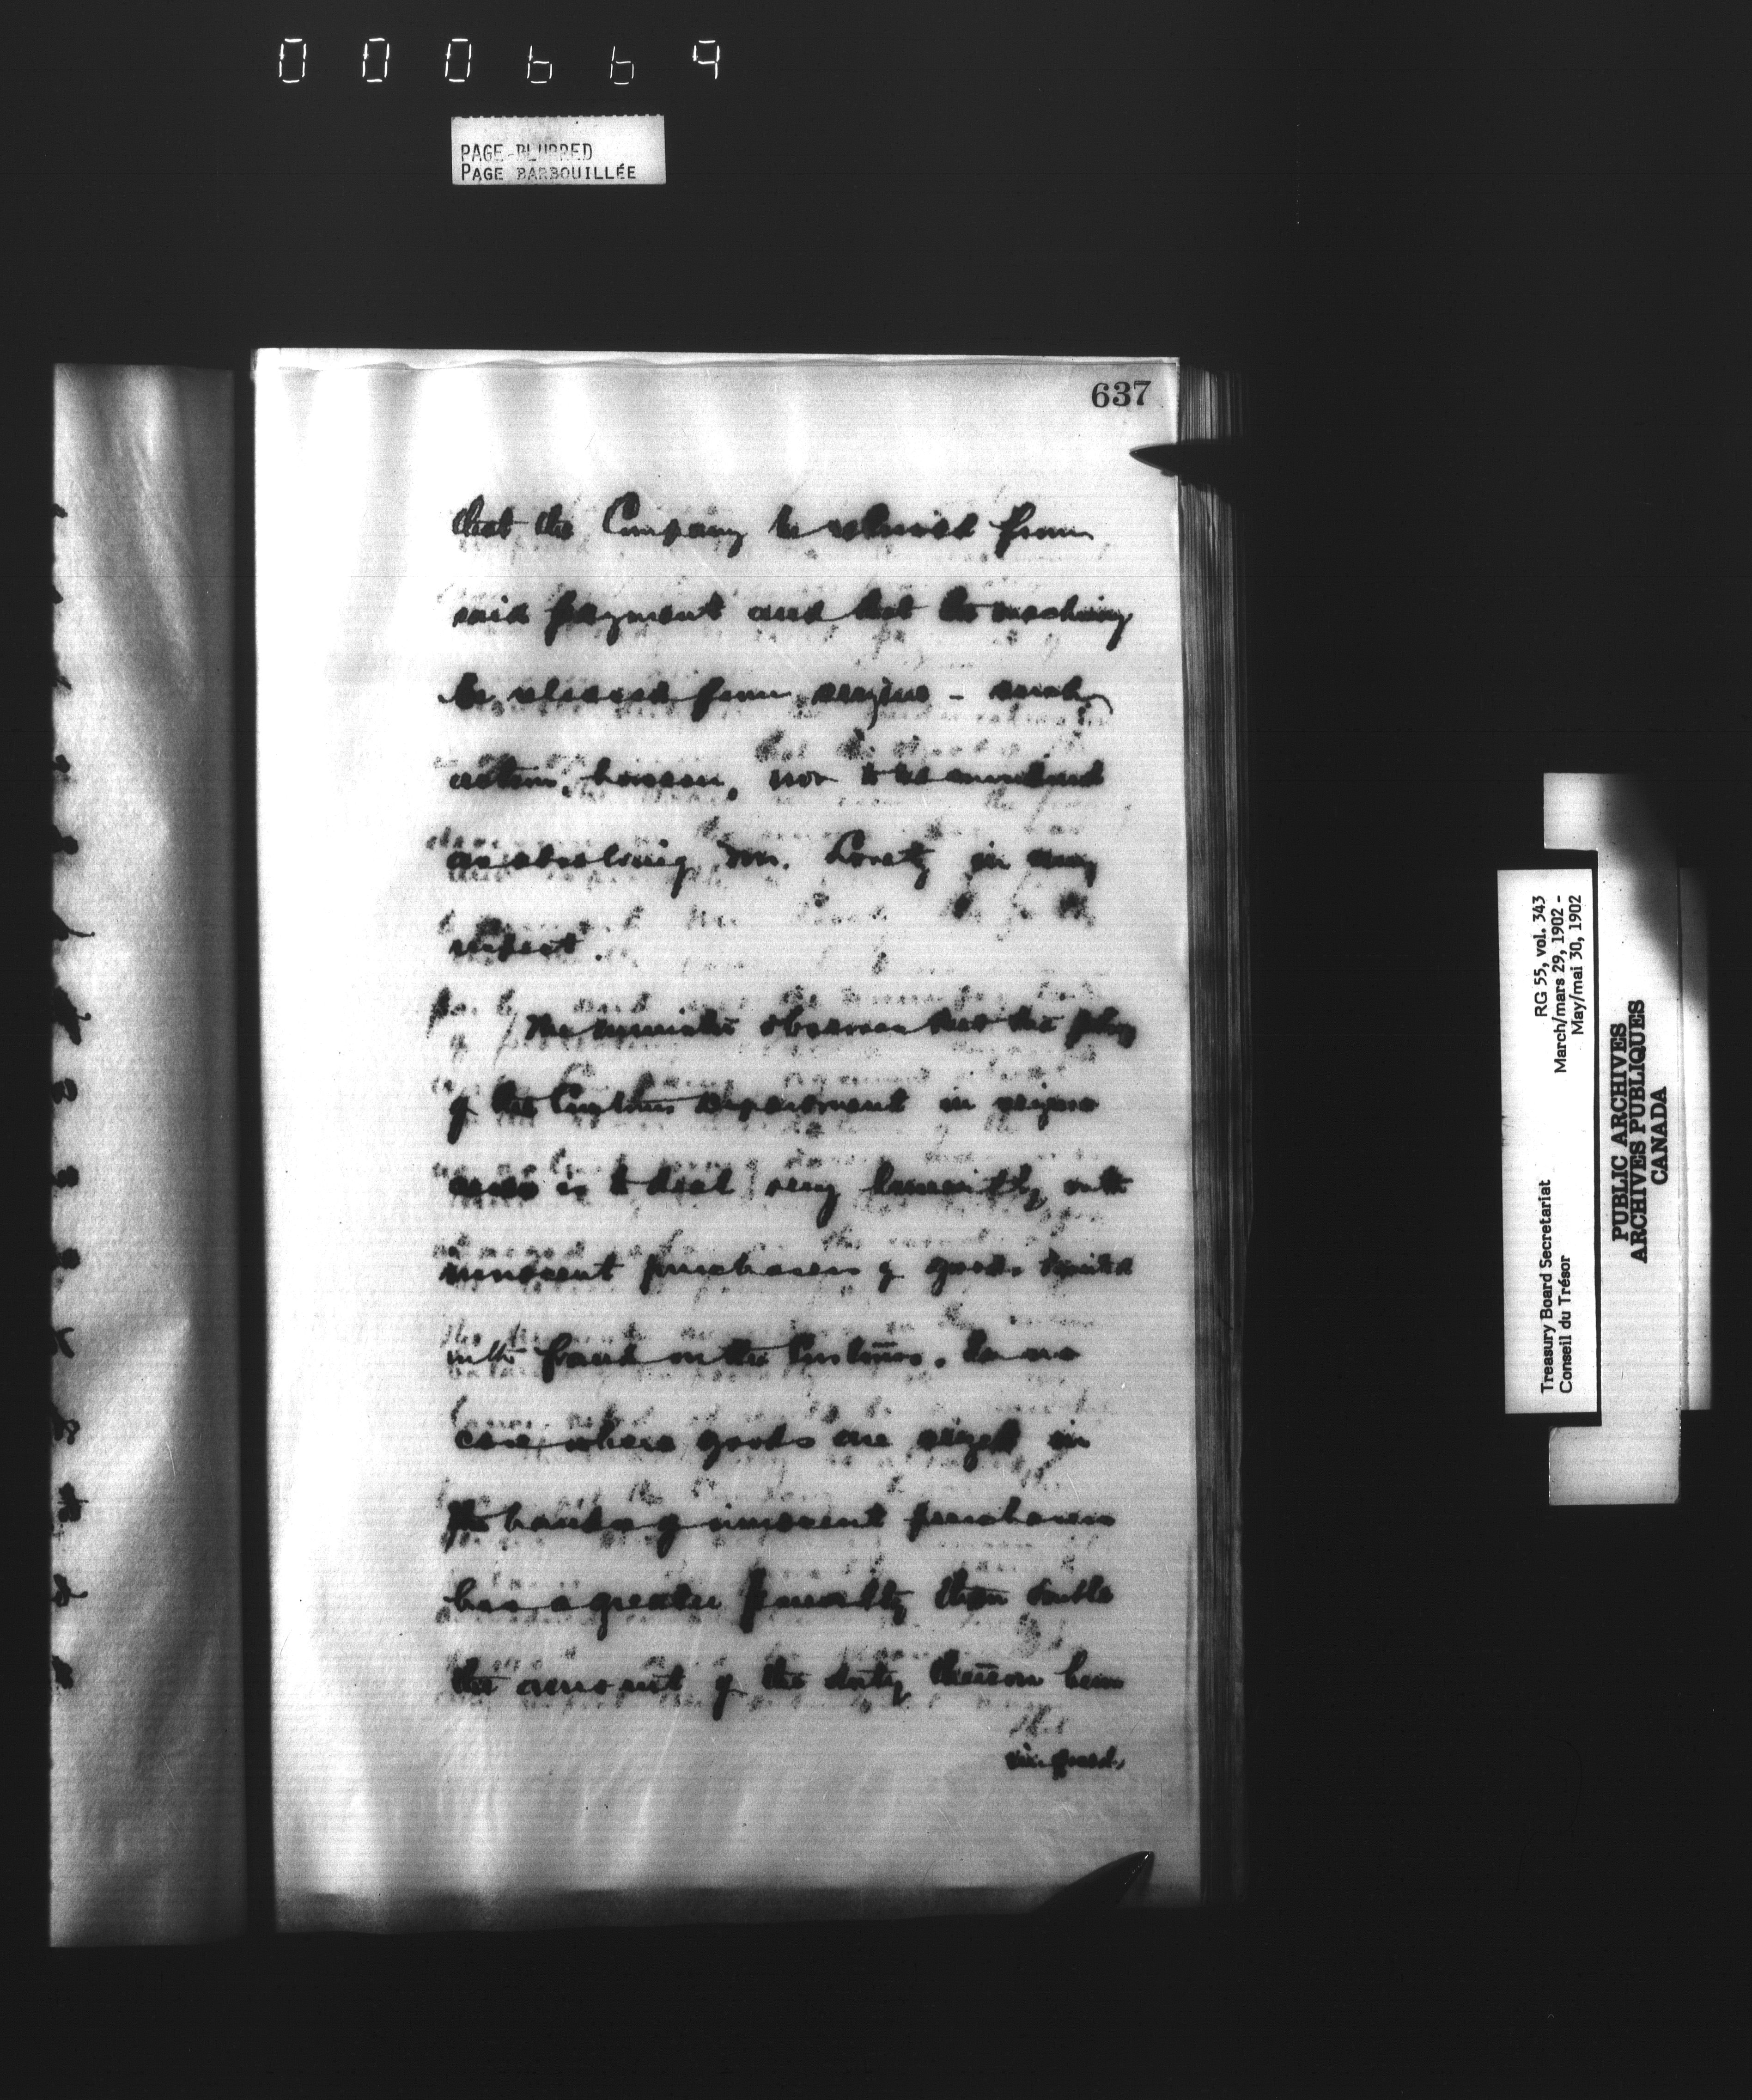 000669
PAGE BLURRED
PAGE BARBOUILLÉE
637
that the Company be relieved from
said payment and that the machinery
be released from seizure - such
action, however, not to be considered
as absolving Mr. Lovitz in any
respect.
The Minister observes that the policy
of the Customs Department in seizure
cases is to deal very leniently with
innocent purchasers of goods tainted
with fraud on the Customs. In no
case where goods are seized in
the hands of innocent purchasers
has a greater penalty than double
the amount of the duty thereon been
imposed,
RG 55, vol. 343
March/mars 29, 1902 -
May/mai 30, 1902
Treasury Board Secretariat
Conseil du Trésor
PUBLIC ARCHIVES
ARCHIVES PUBLIQUES
CANADA